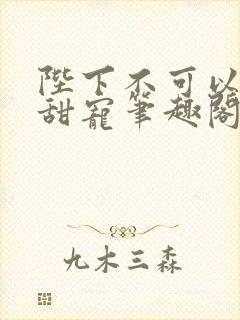 陛下不可以
甜宠笔趣阁
九木三森